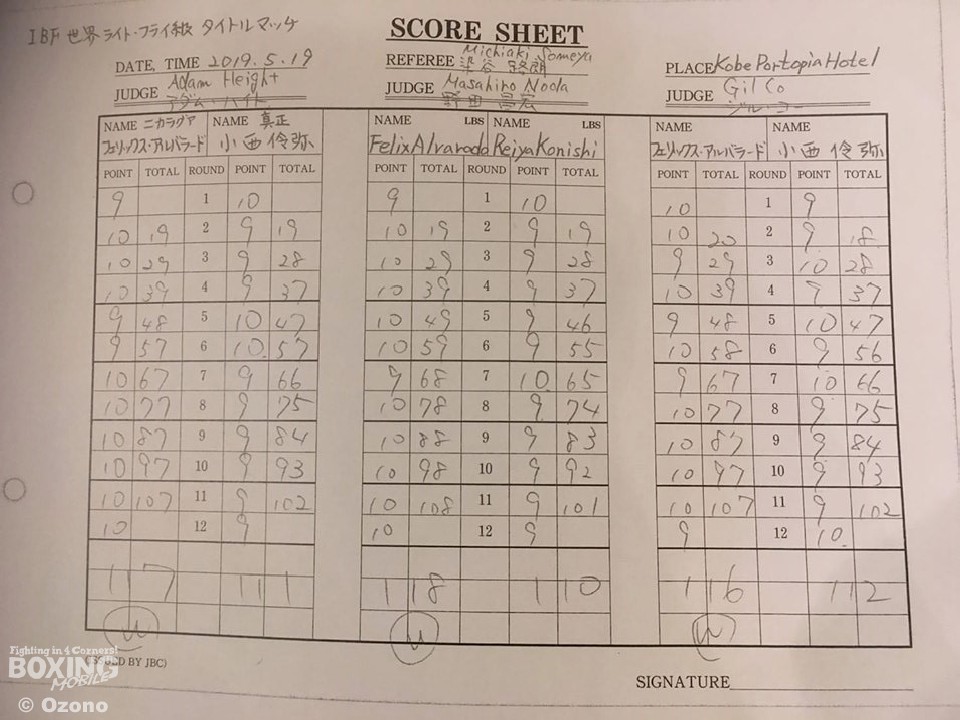 IBF 世界ライト・フライ級 タイトルマッチ
SCORE SHEET
DATE, TIME 2019. 5. 19
REFEREE Michiaki Someya
染谷 路朗
PLACE Kobe Portopia Hotel
JUDGE Adam Height
アダム・ハイト
JUDGE Masahiro Noda
野田 昌宏
JUDGE Gil Co
ジル・コー
NAME ニカラグア NAME 真正 NAME LBS NAME LBS NAME NAME
フェリックス・アルバラード 小西 伶弥 Felix Alvarado Reiya Konishi フェリックス・アルバラード 小西 伶弥
POINT TOTAL ROUND POINT TOTAL POINT TOTAL ROUND POINT TOTAL POINT TOTAL ROUND POINT TOTAL
9 1 10 9 1 10 10 1 9
10 19 2 9 19 10 19 2 9 19 10 20 2 9 18
10 29 3 9 28 10 29 3 9 28 9 29 3 10 28
10 39 4 9 37 10 39 4 9 37 10 39 4 9 37
9 48 5 10 47 10 49 5 9 46 9 48 5 10 47
9 57 6 10 57 10 59 6 9 55 10 58 6 9 56
10 67 7 9 66 9 68 7 10 65 9 67 7 10 66
10 77 8 9 75 10 78 8 9 74 10 77 8 9 75
10 87 9 9 84 10 88 9 9 83 10 87 9 9 84
10 97 10 9 93 10 98 10 9 92 10 97 10 9 93
10 107 11 9 102 10 108 11 9 101 10 107 11 9 102
10 12 9 10 12 9 9 12 10
117 111 118 110 116 112
W W W
(ISSUED BY JBC)
SIGNATURE
Fighting in 4 Corners!
BOXING
MOBILE
© Ozono